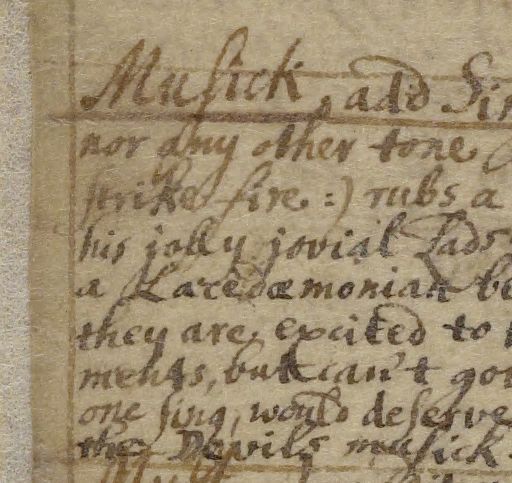 Musick, add Sin
nor any other tone
strike fire :) rubs a
his jolly jovial Lads
a Lacedæmonian be
they are excited to
ments, but can't go
one sing, would deserve
the Devils musick.